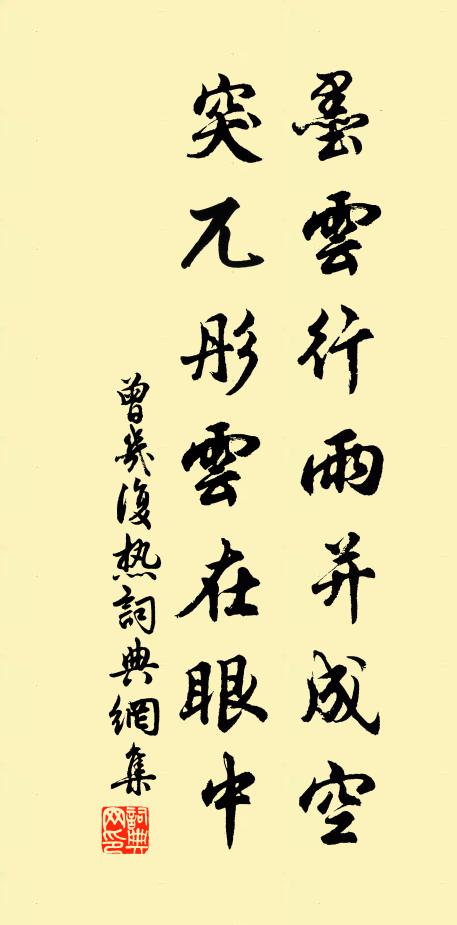 墨雲行雨并成空
突兀彤雲在眼中
曾幾復热詞典網集
詞典网印